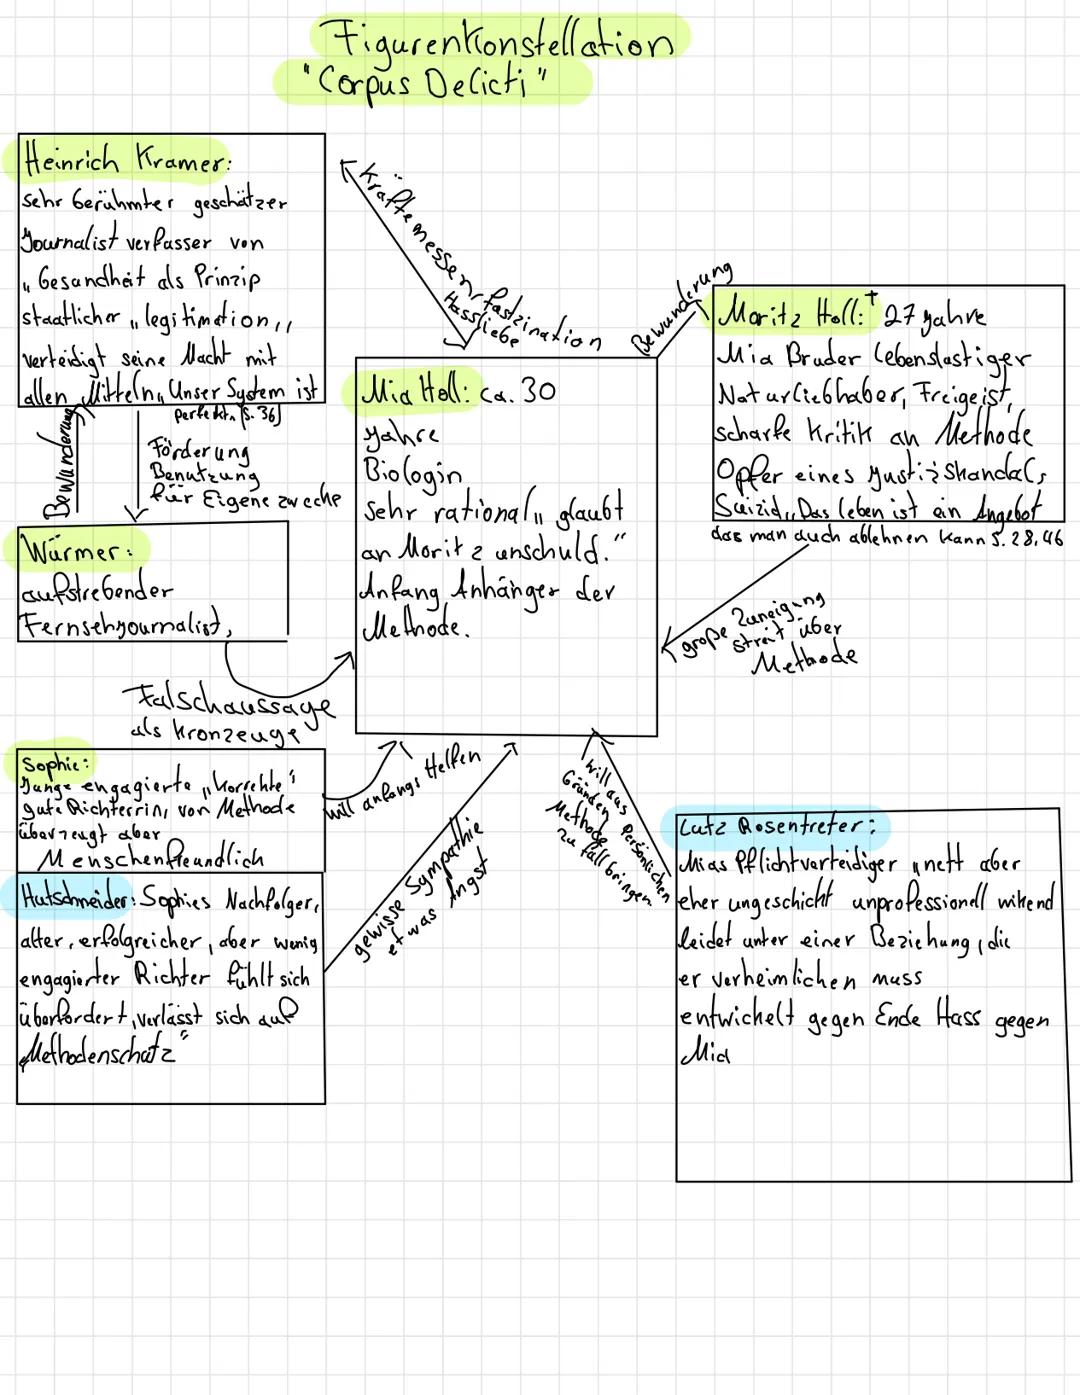 Figurenkonstellation
"Corpus Delicti"
Heinrich Kramer:
sehr berühmter geschätzer
Journalist verfasser von
„Gesandheit als Prinzip
staatlicher „legitimation„
verteidigt seine Macht mit
allen Mitteln„Unser System ist
perfekt„ (S. 36)
Kräftemessen, fastzination
Hassliebe
Bewunderung
Moritz Holl:† 27 Jahre
Mia Bruder lebenslastiger
Naturliebhaber, Freigeist,
scharfe Kritik an Methode
Opfer eines Justizskandals,
Suizid„Das leben ist ein Angebot
das man auch ablehnen kann S. 28,46
Mia Holl: ca. 30
Jahre
Biologin
sehr rational„ glaubt
an Moritz unschuld."
Anfang Anhänger der
Methode.
Bewunderung
Förderung
Benutzung
für Eigene zwecke
Würmer:
aufstrebender
Fernsehjournalist,
große Zuneigung
streit über
Methode
Falschaussage
als Kronzeuge
Sophie:
Junge engagierte „korrekte"
gute Richterrin, von Methode
überzeugt aber
Menschenfreundlich
will anfangs Helfen
Hutschneider: Sophies Nachfolger,
alter, erfolgreicher, aber wenig
engagierter Richter fühlt sich
überfordert, verlässt sich auf
„Methodenschatz"
gewisse Sympathie
etwas Angst
will aus Persönlichen
Gründen
Methode
zu fall bringen
Lutz Rosentreter:
Mias Pflichtverteidiger „nett aber
eher ungeschickt unprofessionell wirkend
leidet unter einer Beziehung, die
er verheimlichen muss
entwickelt gegen Ende Hass gegen
Mia